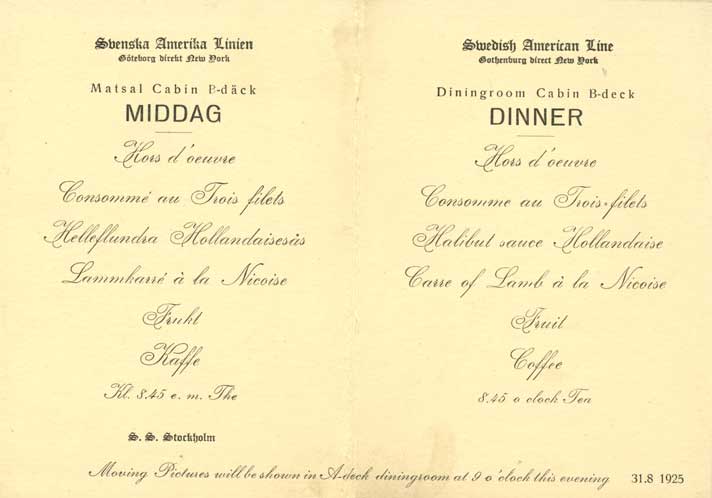 Svenska Amerika Linien
Göteborg direkt New York
Matsal Cabin B-däck
MIDDAG
Hors d'oeuvre
Consommé au Trois filets
Helleflundra Hollandaisesås
Lammkarré à la Nicoise
Frukt
Kaffe
Kl. 8.45 e. m. The
S. S. Stockholm
Swedish American Line
Gothenburg direct New York
Diningroom Cabin B-deck
DINNER
Hors d'oeuvre
Consomme au Trois filets
Halibut sauce Hollandaise
Carre of Lamb à la Nicoise
Fruit
Coffee
8.45 o clock Tea
Moving Pictures will be shown in A-deck diningroom at 9 o'clock this evening 31.8 1925